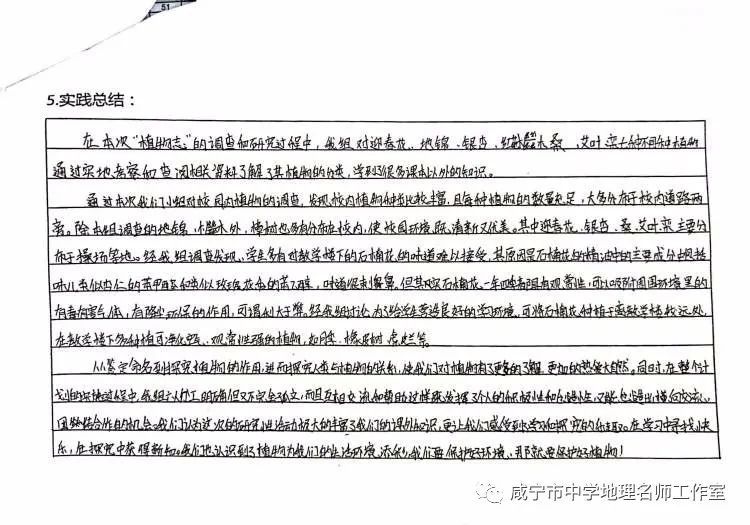 51
5.实践总结：
在本次“植物志”的调查和研究过程中，我组对迎春花、地锦、银杏、红花檵木、桑、艾叶栾七种不同种植物
通过实地考察和查阅相关资料了解了其植物的分类，学到了很多课本以外的知识。
通过本次我们小组对校园内植物的调查，发现校内植物种类比较丰富，且每种植物的数量充足，大多分布于校内道路两
旁。除本组调查的地锦、檵木外，樟树也多有分布在校内，使校园环境既清新又优美。其中迎春花、银杏、桑、艾叶栾主要分
布于操场等地。经我组调查发现，学生多有对教学楼下的石楠花的味道难以接受，其原因是石楠花的精油中的主要成分中包括
味儿类似杏仁的苯甲醛和类似玫瑰花香的苯乙醇，味道强刺鼻，但其实石楠花一年四季都具有观赏性，可以吸附周围环境里的
有毒有害气体，有除尘的作用，可谓利大于弊。经我组讨论，为给学生营造良好的学习环境，可将石楠花种植于离教学楼较远处，
在教学楼下多种植可净化空气、观赏性强的植物，如月季、橡皮树、虎尾兰等。
从鉴定命名到探究植物的作用，进而探究人类与植物的联系，使我们对植物有了更多的了解，更加的热爱大自然。同时，在整个计
划的实施过程中，我组分工明确但又不完全孤立，而且互相交流和帮助，这样既发挥了个人的积极性和创造性，又能创造出横向交流、
团结合作的机会。我们认为这次的研究性活动极大的丰富了我们的课外知识，更让我们感受到学习和探究的乐趣。在学习中寻找快
乐，在探究中获得新知。我们也认识到了植物为我们的生活环境添彩，我们要保护好环境，那就要保护好植物！
咸宁市中学地理名师工作室